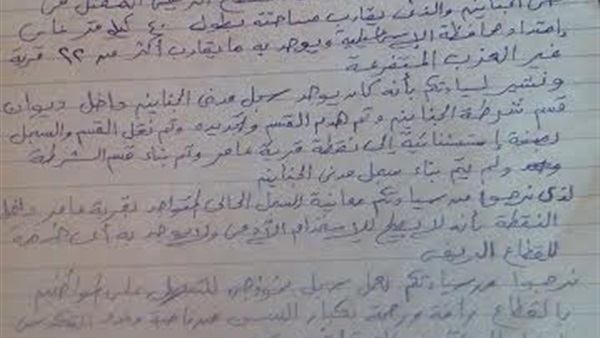 حى الجناين والذى يقارب مساحته بطول ٤٠ كيلو متر على
وامتداد محافظة الإسماعيلية ويوجد به ما يقارب أكثر من ٢٢ قرية
غير العزب المتفرعة
ونشير لسيادتكم بأنه كان يوجد سجل مدنى الجناين داخل ديوان
قسم شرطة الجناين وتم هدم القسم وتجديده وتم نقل القسم والسجل
بصفة إستثنائية إلى نقطة قرية عامر وتم بناء قسم الشرطة
ولم يتم بناء سجل مدنى الجناين
لذى نرجوا من سيادتكم معاينة السجل الحالى المتواجد بقرية عامر داخل
النقطة بأنه لا يصلح للإستخدام الآدمى ولا يوجد به أى خدمة
للقطاع الريفى
نرجوا من سيادتكم عمل سجل نموذجى للتسهيل على المواطنين
بالقطاع رأفة ورحمة بكبار السن